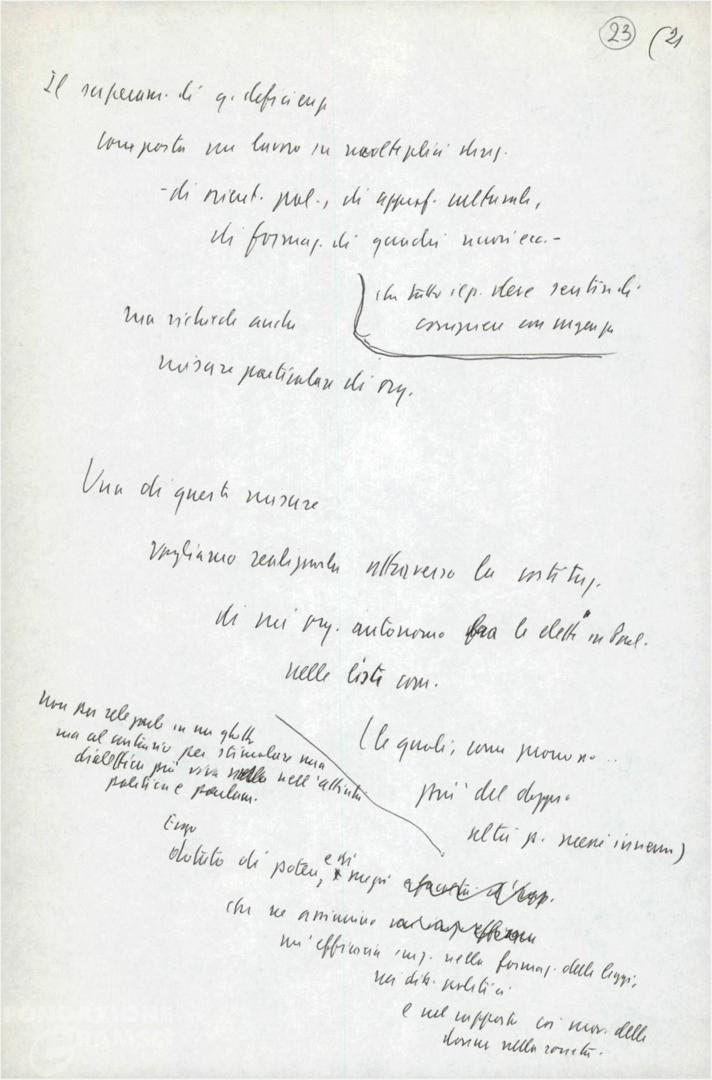 23 (21
Il superam. di q. deficienze
comporta un lavoro in molteplici direz.
- di orient. pol., di approf. culturale,
di formaz. di quadri nuovi ecc. -
che tutto il p. deve sentire di
compiere con urgenza
ma richiede anche
misure particolari di org.
Una di queste misure
vogliamo realizzarla attraverso la costituz.
di un org. autonomo fra le elette in Parl.
nelle liste com.
(le quali, come
più del doppio
altri p. messi insieme)
non per relegarle in un ghetto
ma al contrario per stimolare una
dialettica più viva nell'attività
politica e parlam.
Esso
dotato di poteri, e di mezzi
che ne assicurino
un'efficacia nella formaz. delle leggi,
nei dib. politici
e nel rapporto coi mov. delle
donne nella società.
FONDAZIONE
GRAMSCI